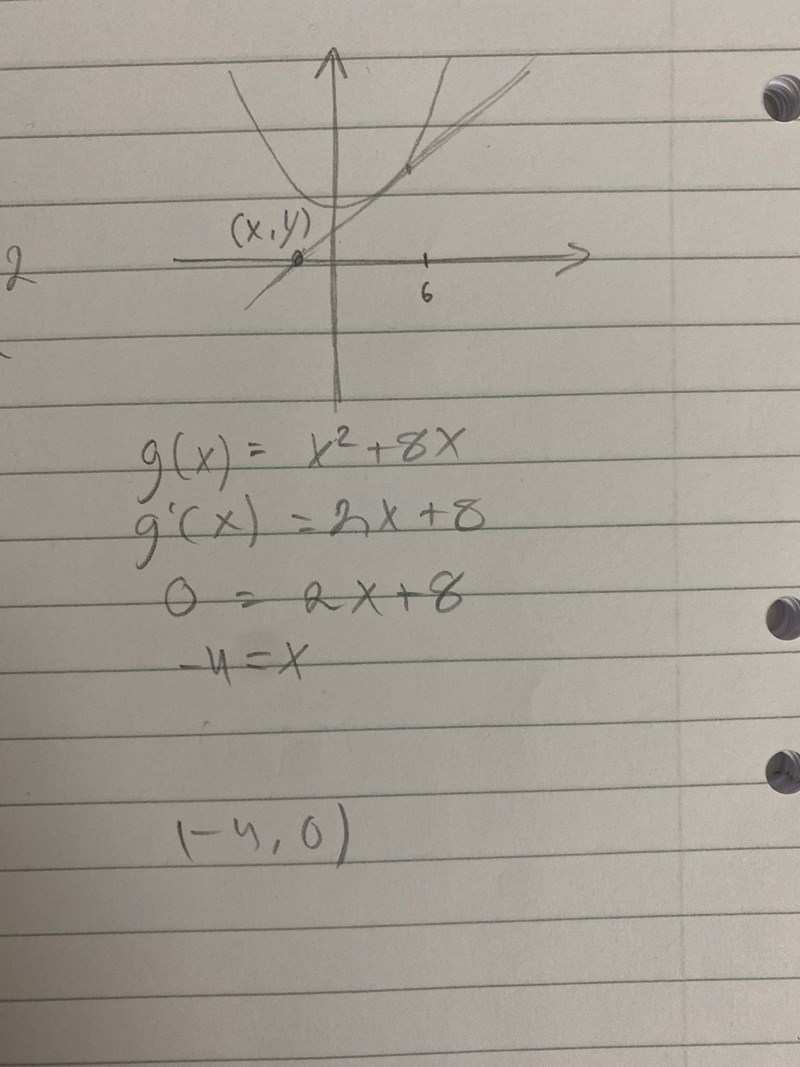 (x,y)
2
6
g(x) = x²+8x
g'(x) = 2x+8
0 = 2x+8
-4=x
(-4,0)